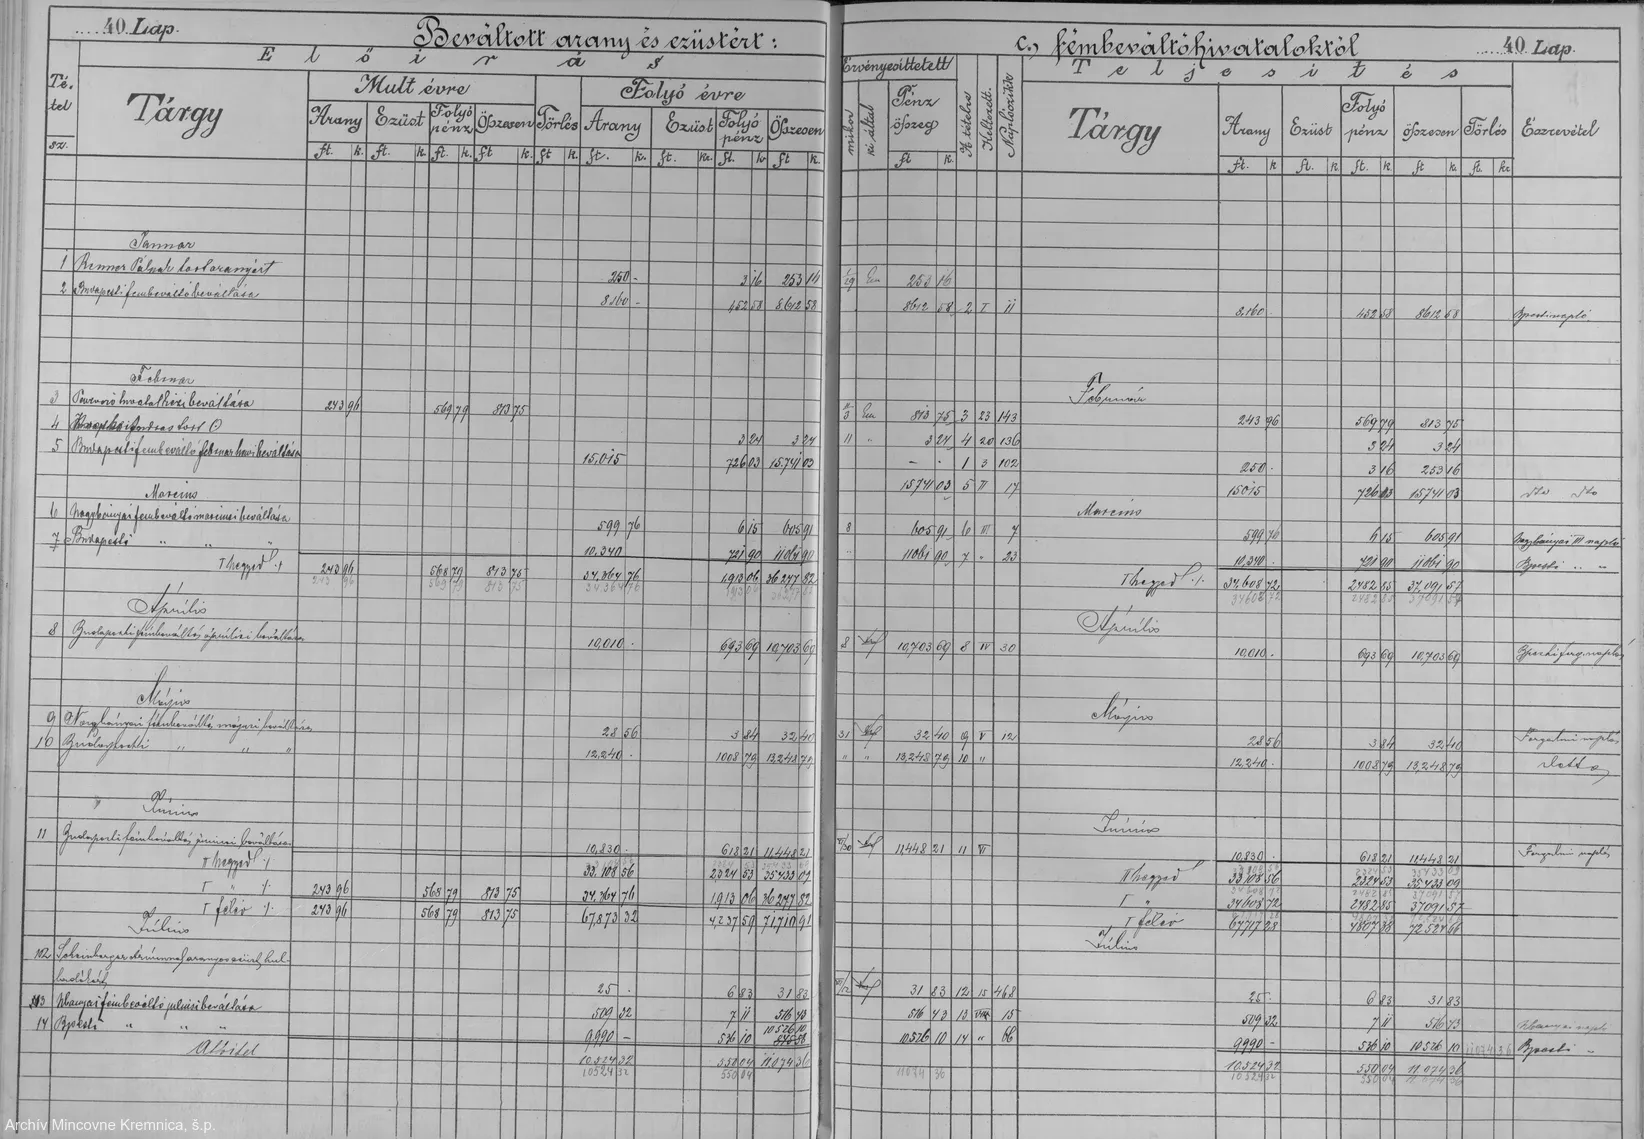 40 Lap.
Beváltott arany és ezüstért:
Előirás
Té-
tel
sz.
Tárgy
Mult évre
Folyó évre
Arany Ezüst Folyó pénz Összesen Törlés Arany Ezüst Folyó pénz Összesen
ft. k. ft. k. ft. k. ft k. ft k. ft. k. ft. kr. ft. kr ft k.
Januar
1 250 - 3 16 253 16
2 Budapesti fémbeváltó beváltása 8160 - 452 58 8612 58
Februar
3 243 96 569 79 813 75
4 3 24 3 24
5 Budapesti fémbeváltó februar havi beváltása 15,015 726 03 15.741 03
Marcius
6 Nagybányai fémbeváltó marciusi beváltása 599 76 6 15 605 91
7 Budapesti " " " 10.340 721 90 11061 90
I negyed ./. 243 96 568 79 813 75 34,364 76 1,913 06 36277 82
Április
8 Budapesti fémbeváltó áprilisi beváltása 10,010 - 693 69 10,703 69
Május
9 Nagybányai fémbeváltó májusi beváltása 28 56 3 84 32 40
10 Budapesti " " " 12,240 - 1008 79 13,248 79
Június
11 Budapesti fémbeváltó júniusi beváltása 10,830 - 618 21 11,448 21
II negyed ./. 33,108 56 2324 53 35433 09
I " ./. 243 96 568 79 813 75 34,364 76 1,913 06 36277 82
I félév ./. 243 96 568 79 813 75 67,873 32 4,237 59 71,710 91
Július
12
25 - 6 83 31 83
13 fémbeváltó juliusi beváltása 509 32 7 11 516 43
14 Bpesti " " " 9,990 - 536 10 10526 10
10.524 32 550 04 11,074 36
10524 32 550 04
c., fémbeváltóhivataloktól
40 Lap.
Érvényesittetett
Teljesités
mikor
ki által
Pénz
összeg
ft k.
A tételre
Keltezett.
Naplóczikk
Tárgy
Arany Ezüst Folyó pénz összesen Törlés Észrevétel
ft. k ft. k ft. k. ft k. ft. kr
253 16
8612 58 2 I 11 8,160 - 452 58 8612 58
Február
813 75 3 23 143 243 96 569 79 813 75
11 " 3 24 4 20 136 3 24 3 24
- - 1 3 102 250 - 3 16 253 16
15741 03 5 II 17 15015 726 03 15741 03 dto dto
Marcius
8 605 91 6 III 7 599 76 6 15 605 91 Nagybányai III napló
" 11061 90 7 " 23 10,340 - 721 90 11061 90 Bpesti " "
I negyed ./. 34,608 72 2482 85 37,091 57
34608 72 2482 85 37091 57
Április
8 10,703 69 8 IV 30 10,010 - 693 69 10,703 69
Május
31 32 40 9 V 12 28 56 3 84 32 40 Forgalmi napló
" " 13,248 79 10 " 12,240 - 1008 79 13,248 79 detto
Június
11,448 21 11 VI 10,830 - 618 21 11,448 21 Forgalmi napló
II negyed 33,108 56 2324 53 35433 09
I " 34608 72 2482 85 37091 57
I félév 67717 28 4807 38 72524 66
Július
31 83 12 15 468 25 - 6 83 31 83
516 43 13 VIII 15 509 32 7 11 516 43
10526 10 14 " 66 9990 - 536 10 10526 10 11074 36 Bpesti "
10.524 32 550 04 11,074 36
11074 36 10524 32 550 04 11,074 36
Archív Mincovne Kremnica, š.p.